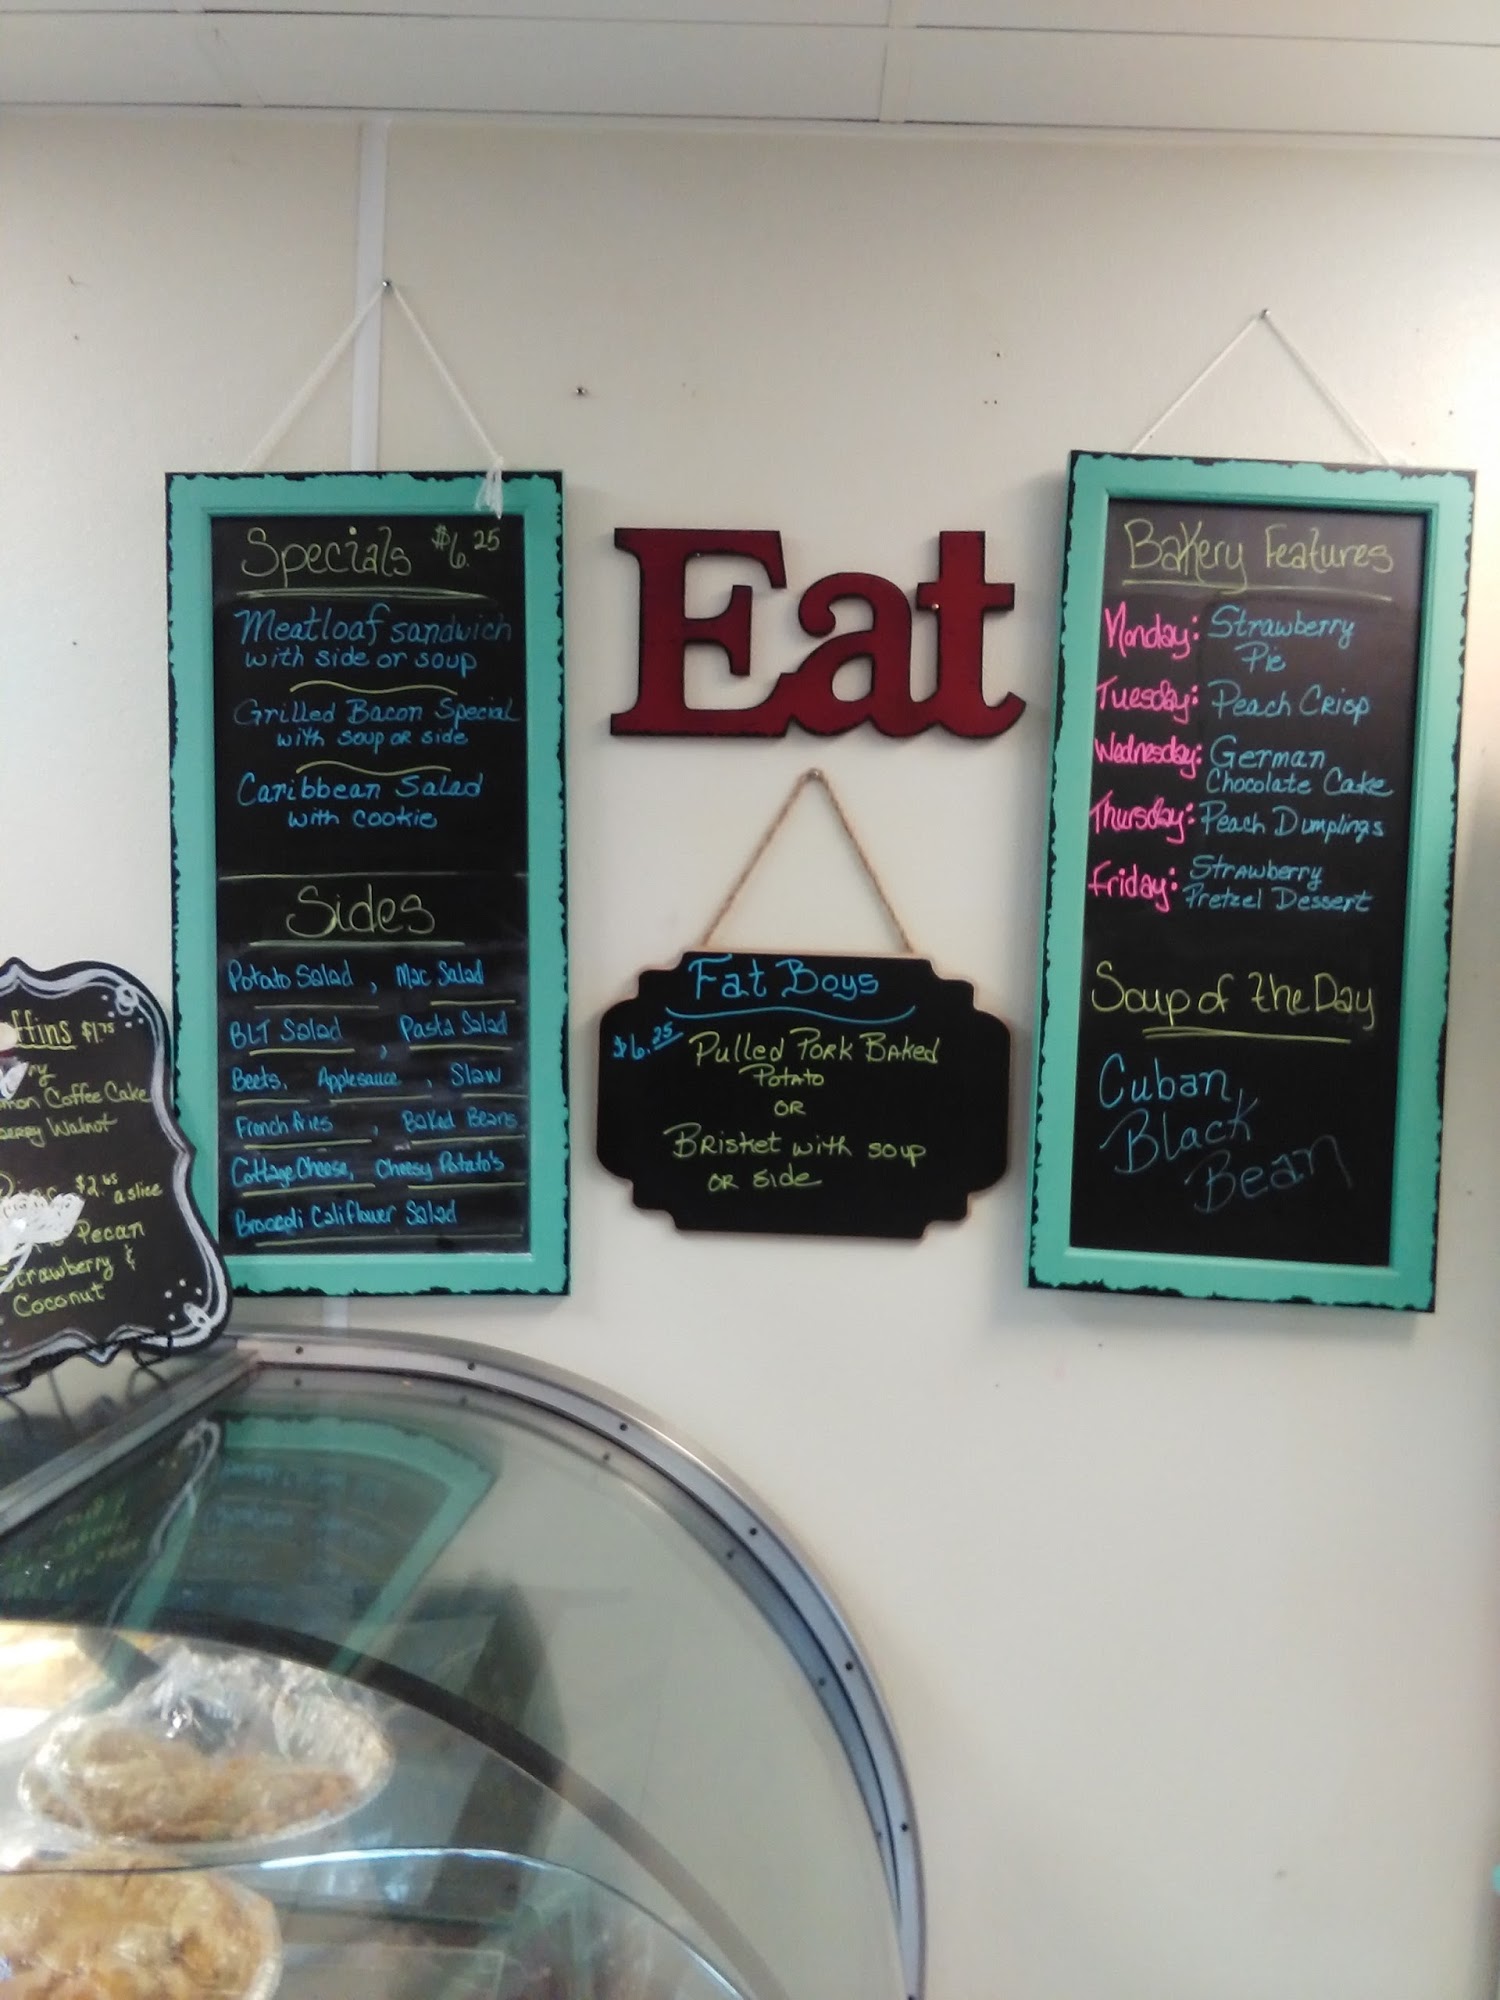 Specials $6.25
Meatloaf sandwich
with side or soup
Grilled Bacon Special
with soup or side
Caribbean Salad
with cookie
Sides
Potato Salad, Mac Salad
BLT Salad, Pasta Salad
Beets, Applesauce, Slaw
French fries, Baked Beans
Cottage Cheese, Cheesy Potato's
Broccoli Califlower Salad
Eat
Fat Boys
$6.25 Pulled Pork Baked
Potato
OR
Brisket with soup
or side
Bakery Features
Monday: Strawberry
Pie
Tuesday: Peach Crisp
Wednesday: German
Chocolate Cake
Thursday: Peach Dumplings
Friday: Strawberry
Pretzel Dessert
Soup of the Day
Cuban
Black
Bean
ffins $1.75
ry
mon Coffee Cake
berry Walnut
$2.65
a slice
Pecan
Strawberry &
Coconut